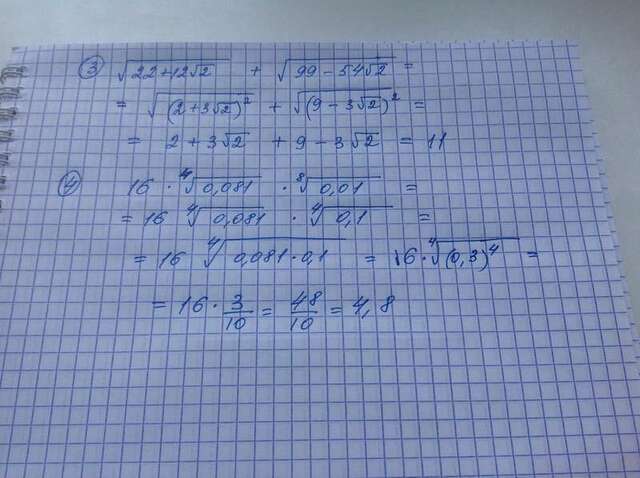 ③ √(22+12√2) + √(99-54√2) =
= √(2+3√2)² + √(9-3√2)² =
= 2+3√2 + 9-3√2 = 11
④ 16 · ⁴√0,081 · ⁸√0,01 =
= 16 ⁴√0,081 · ⁴√0,1 =
= 16 ⁴√0,081·0,1 = 16·⁴√(0,3)⁴ =
= 16 · 3/10 = 48/10 = 4,8